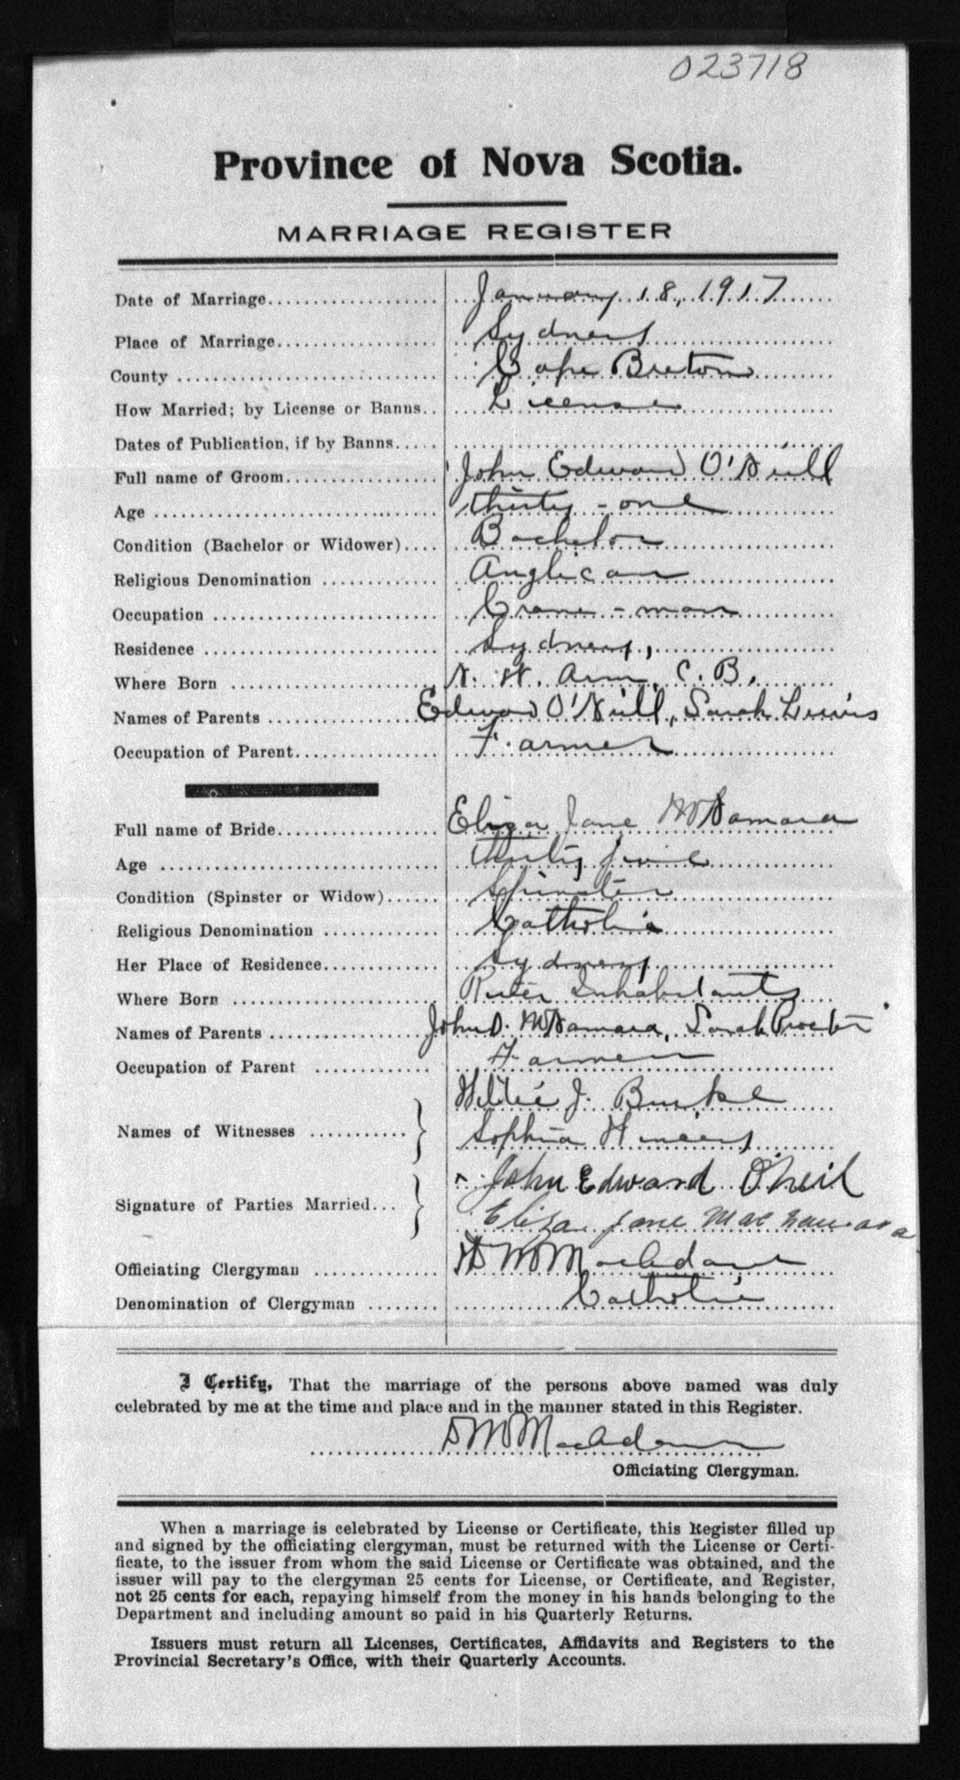 023718
Province of Nova Scotia.
MARRIAGE REGISTER
Date of Marriage................... January 18, 1917
Place of Marriage.................. Sydney
County ............................. Cape Breton
How Married; by License or Banns.. License
Dates of Publication, if by Banns.....
Full name of Groom................. John Edward O'Neill
Age ................................ thirty-one
Condition (Bachelor or Widower).... Bachelor
Religious Denomination ............ Anglican
Occupation ......................... Crane-man
Residence .......................... Sydney,
Where Born ....................... N. W. Arm, C. B.
Names of Parents ................. Edward O'Neill, Sarah Lewis
Occupation of Parent............... Farmer
Full name of Bride................. Eliza Jane McNamara
Age ................................ thirty five
Condition (Spinster or Widow)...... Spinster
Religious Denomination ............ Catholic
Her Place of Residence............. Sydney
Where Born ....................... River Inhabitants
Names of Parents ................. John D. McNamara, Sarah Procter
Occupation of Parent ............. Farmer
Names of Witnesses ........... J. Burke
Sophia
Signature of Parties Married... John Edward O'Neil
Eliza Jane MacNamara
Officiating Clergyman ............. D M MacAdam
Denomination of Clergyman ........ Catholic
I Certify, That the marriage of the persons above named was duly
celebrated by me at the time and place and in the manner stated in this Register.
D M MacAdam
Officiating Clergyman.
When a marriage is celebrated by License or Certificate, this Register filled up
and signed by the officiating clergyman, must be returned with the License or Certi-
ficate, to the issuer from whom the said License or Certificate was obtained, and the
issuer will pay to the clergyman 25 cents for License, or Certificate, and Register,
not 25 cents for each, repaying himself from the money in his hands belonging to the
Department and including amount so paid in his Quarterly Returns.
Issuers must return all Licenses, Certificates, Affidavits and Registers to the
Provincial Secretary's Office, with their Quarterly Accounts.